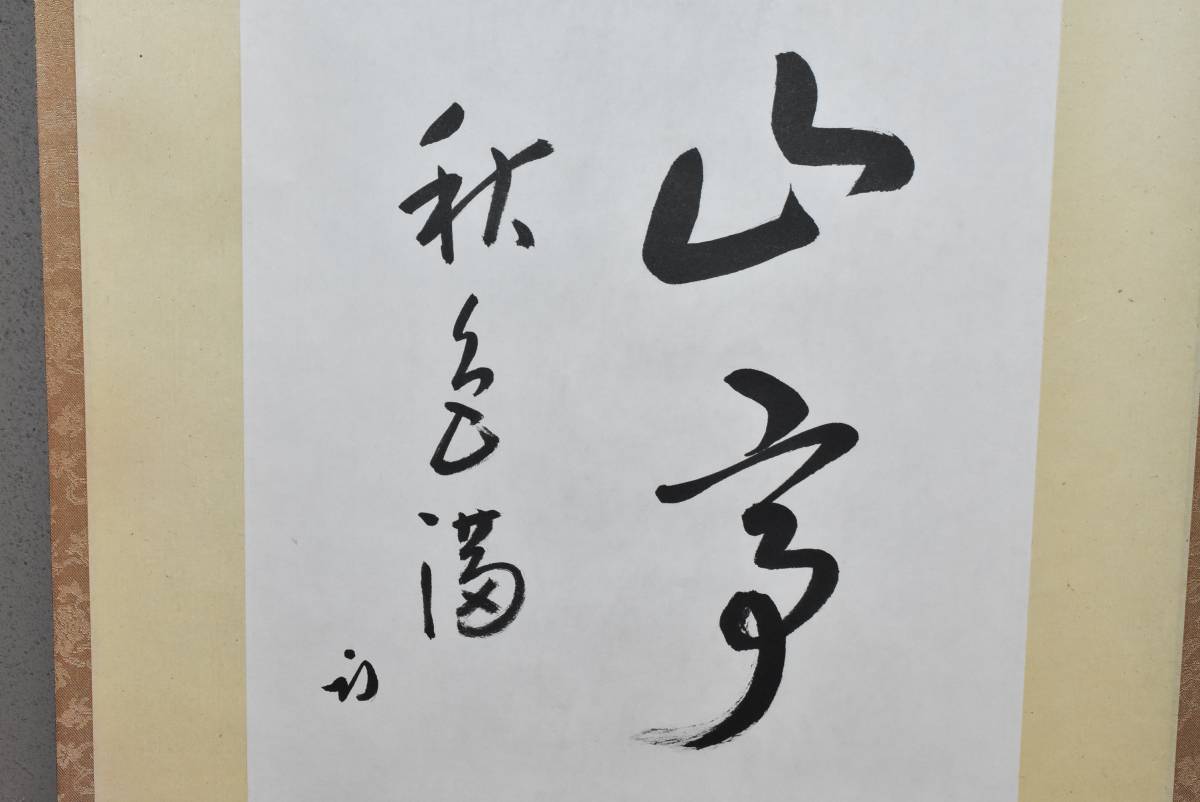 山亭
秋色満